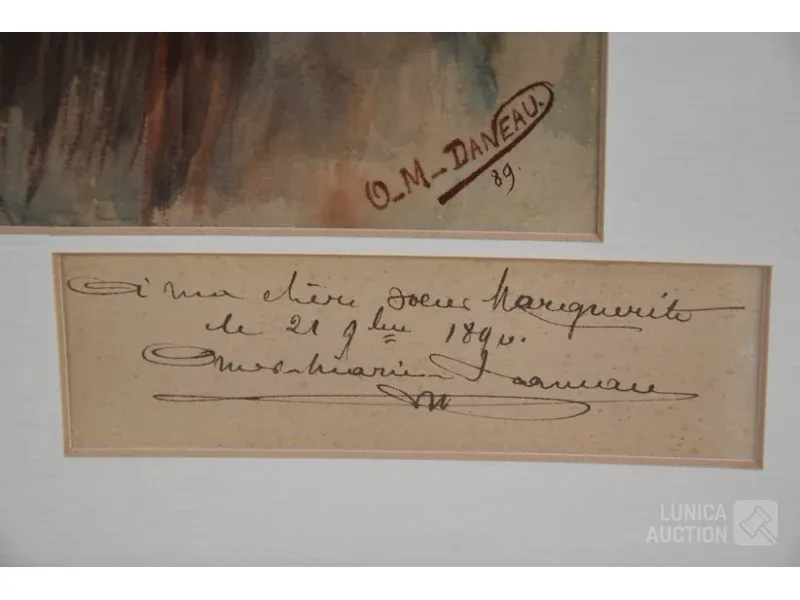 O_M_DANEAU.
89.
A ma chère soeur Marguerite
le 21 9bre 1890.
Omer-Marie Daneau
LUNICA
AUCTION